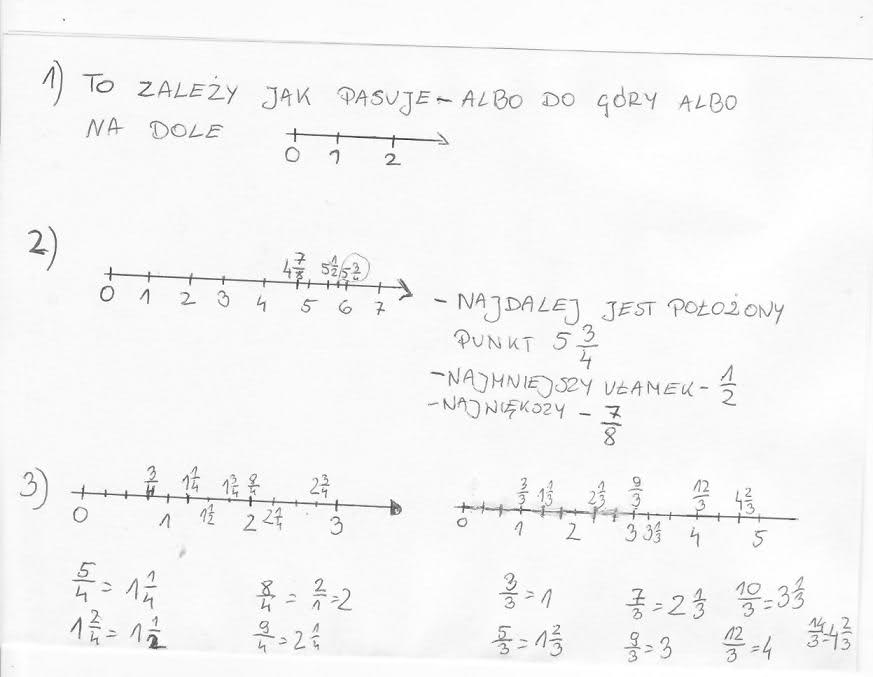 1) TO ZALEŻY JAK PASUJE - ALBO DO GÓRY ALBO
NA DOLE
0 1 2
2)
4 7/8 5 1/2 5 3/4
0 1 2 3 4 5 6 7
- NAJDALEJ JEST POŁOŻONY
PUNKT 5 3/4
- NAJMNIEJSZY UŁAMEK - 1/2
- NAJWIĘKSZY - 7/8
3)
3/4 1 1/4 1 3/4 8/4 2 3/4
0 1 1 1/2 2 2 1/4 3
3/3 1 1/3 2 1/3 9/3 12/3 4 2/3
0 1 2 3 3 1/3 4 5
5/4 = 1 1/4 8/4 = 2/1 = 2
1 2/4 = 1 1/2 9/4 = 2 1/4
3/3 = 1 7/3 = 2 1/3 10/3 = 3 1/3
5/3 = 1 2/3 9/3 = 3 12/3 = 4 14/3 = 4 2/3